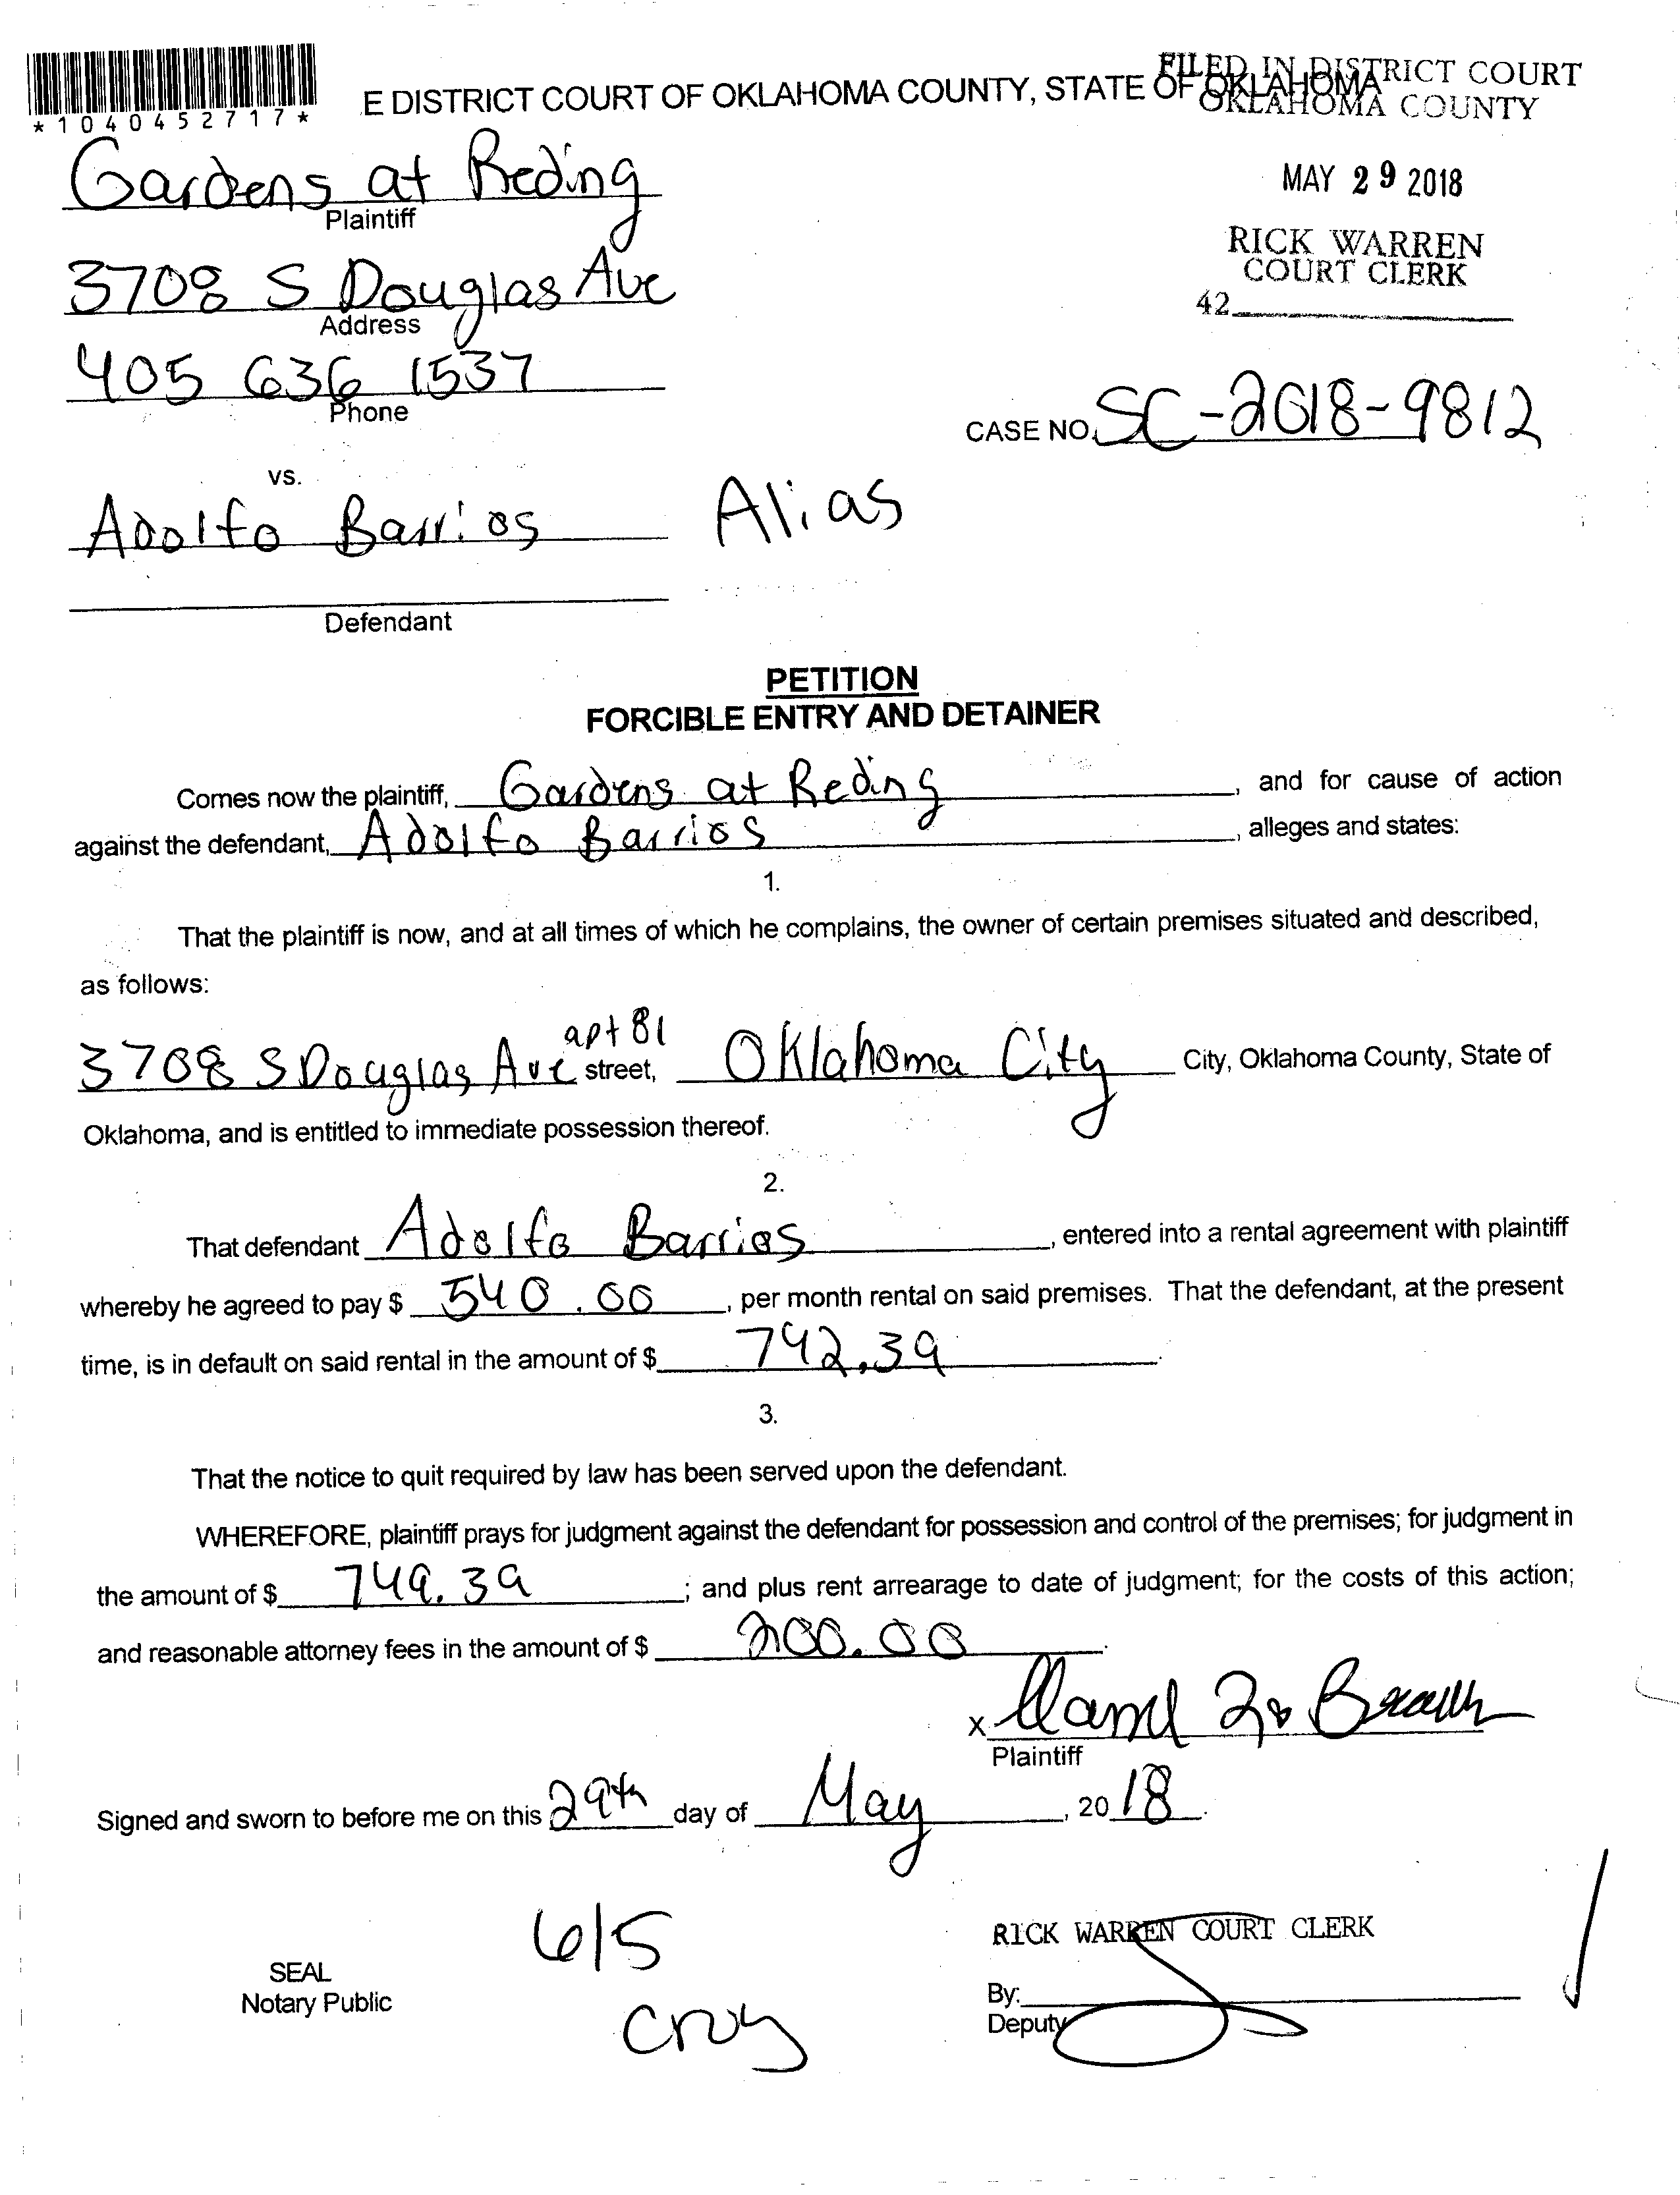 *1040452717*
E DISTRICT COURT OF OKLAHOMA COUNTY, STATE OF OKLAHOMA
FILED IN DISTRICT COURT
OKLAHOMA COUNTY
Gardens at Reding
Plaintiff
MAY 29 2018
RICK WARREN
COURT CLERK
42
3708 S Douglas Ave
Address
405 636 1537
Phone
CASE NO. SC-2018-9812
vs.
Adolfo Barrios
Alias
Defendant
PETITION
FORCIBLE ENTRY AND DETAINER
Comes now the plaintiff, Gardens at Reding, and for cause of action
against the defendant, Adolfo Barrios, alleges and states:
1.
That the plaintiff is now, and at all times of which he complains, the owner of certain premises situated and described,
as follows:
3708 S Douglas Ave apt 81 street, Oklahoma City City, Oklahoma County, State of
Oklahoma, and is entitled to immediate possession thereof.
2.
That defendant Adolfo Barrios, entered into a rental agreement with plaintiff
whereby he agreed to pay $ 540.00, per month rental on said premises. That the defendant, at the present
time, is in default on said rental in the amount of $ 742.39.
3.
That the notice to quit required by law has been served upon the defendant.
WHEREFORE, plaintiff prays for judgment against the defendant for possession and control of the premises; for judgment in
the amount of $ 749.39; and plus rent arrearage to date of judgment; for the costs of this action;
and reasonable attorney fees in the amount of $ 200.00.
x
Plaintiff
Signed and sworn to before me on this 29th day of May, 2018.
6/5
RICK WARREN COURT CLERK
SEAL
Notary Public
By:
Deputy